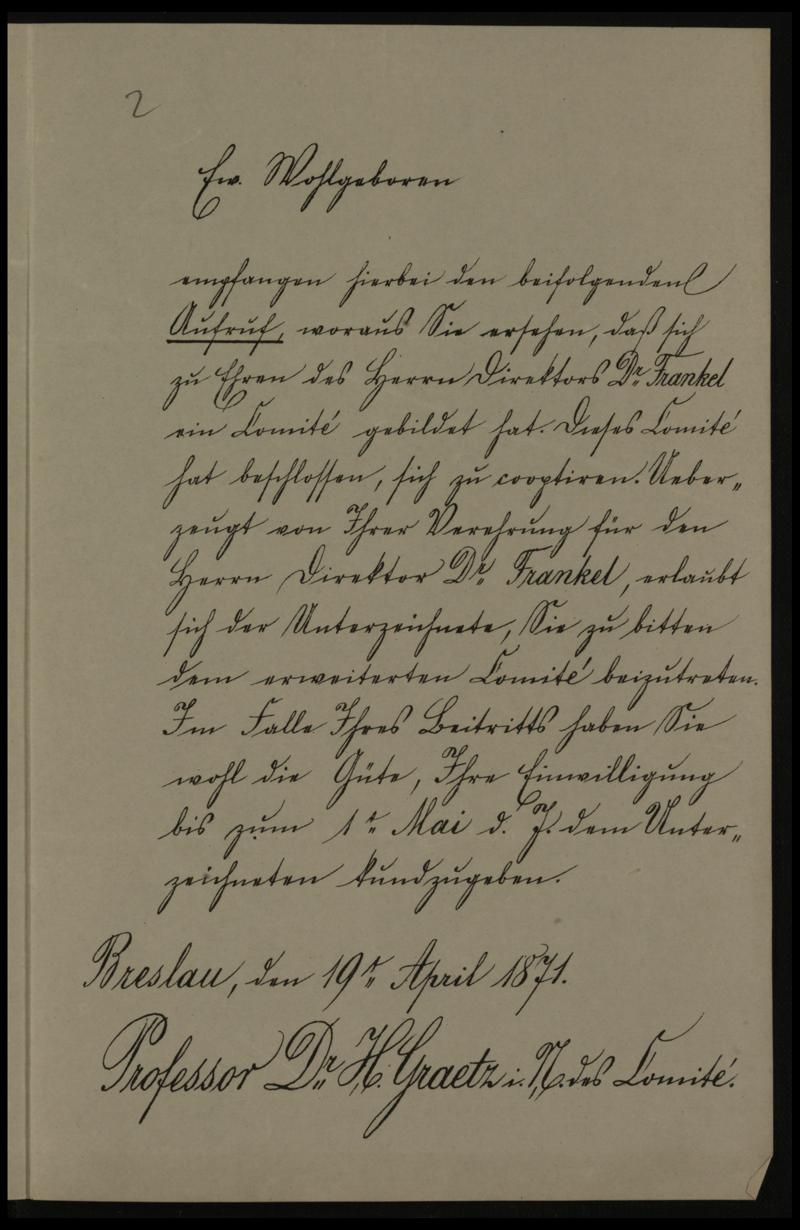 2
Ew. Wohlgeboren
empfangen hierbei den beifolgenden
Aufruf, woraus Sie ersehen, daß sich
zu Ehren des Herrn Direktors Dr. Frankel
ein Comité gebildet hat. Dieses Comité
hat beschlossen, sich zu cooptiren. Ueber„
zeugt von Ihrer Verehrung für den
Herrn Direktor Dr. Frankel, erlaubt
sich der Unterzeichnete, Sie zu bitten
dem erweiterten Comité beizutreten.
Im Falle Ihres Beitritts haben Sie
wohl die Güte, Ihre Einwilligung
bis zum 1t. Mai d. J. dem Unter„
zeichneten kundzugeben.
Breslau, den 19t. April 1871.
Professor Dr. H. Graetz i. N. des Comité.